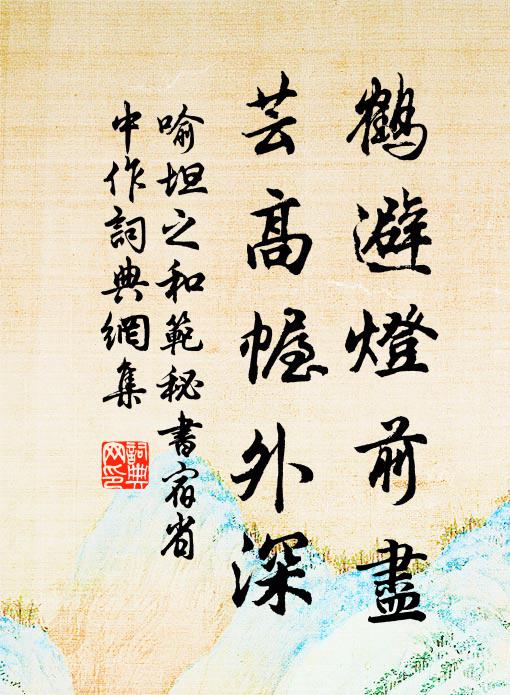 鶴避燈前盡
芸高幄外深
喻坦之和範秘書宿省
中作詞典網集
詞典
网印